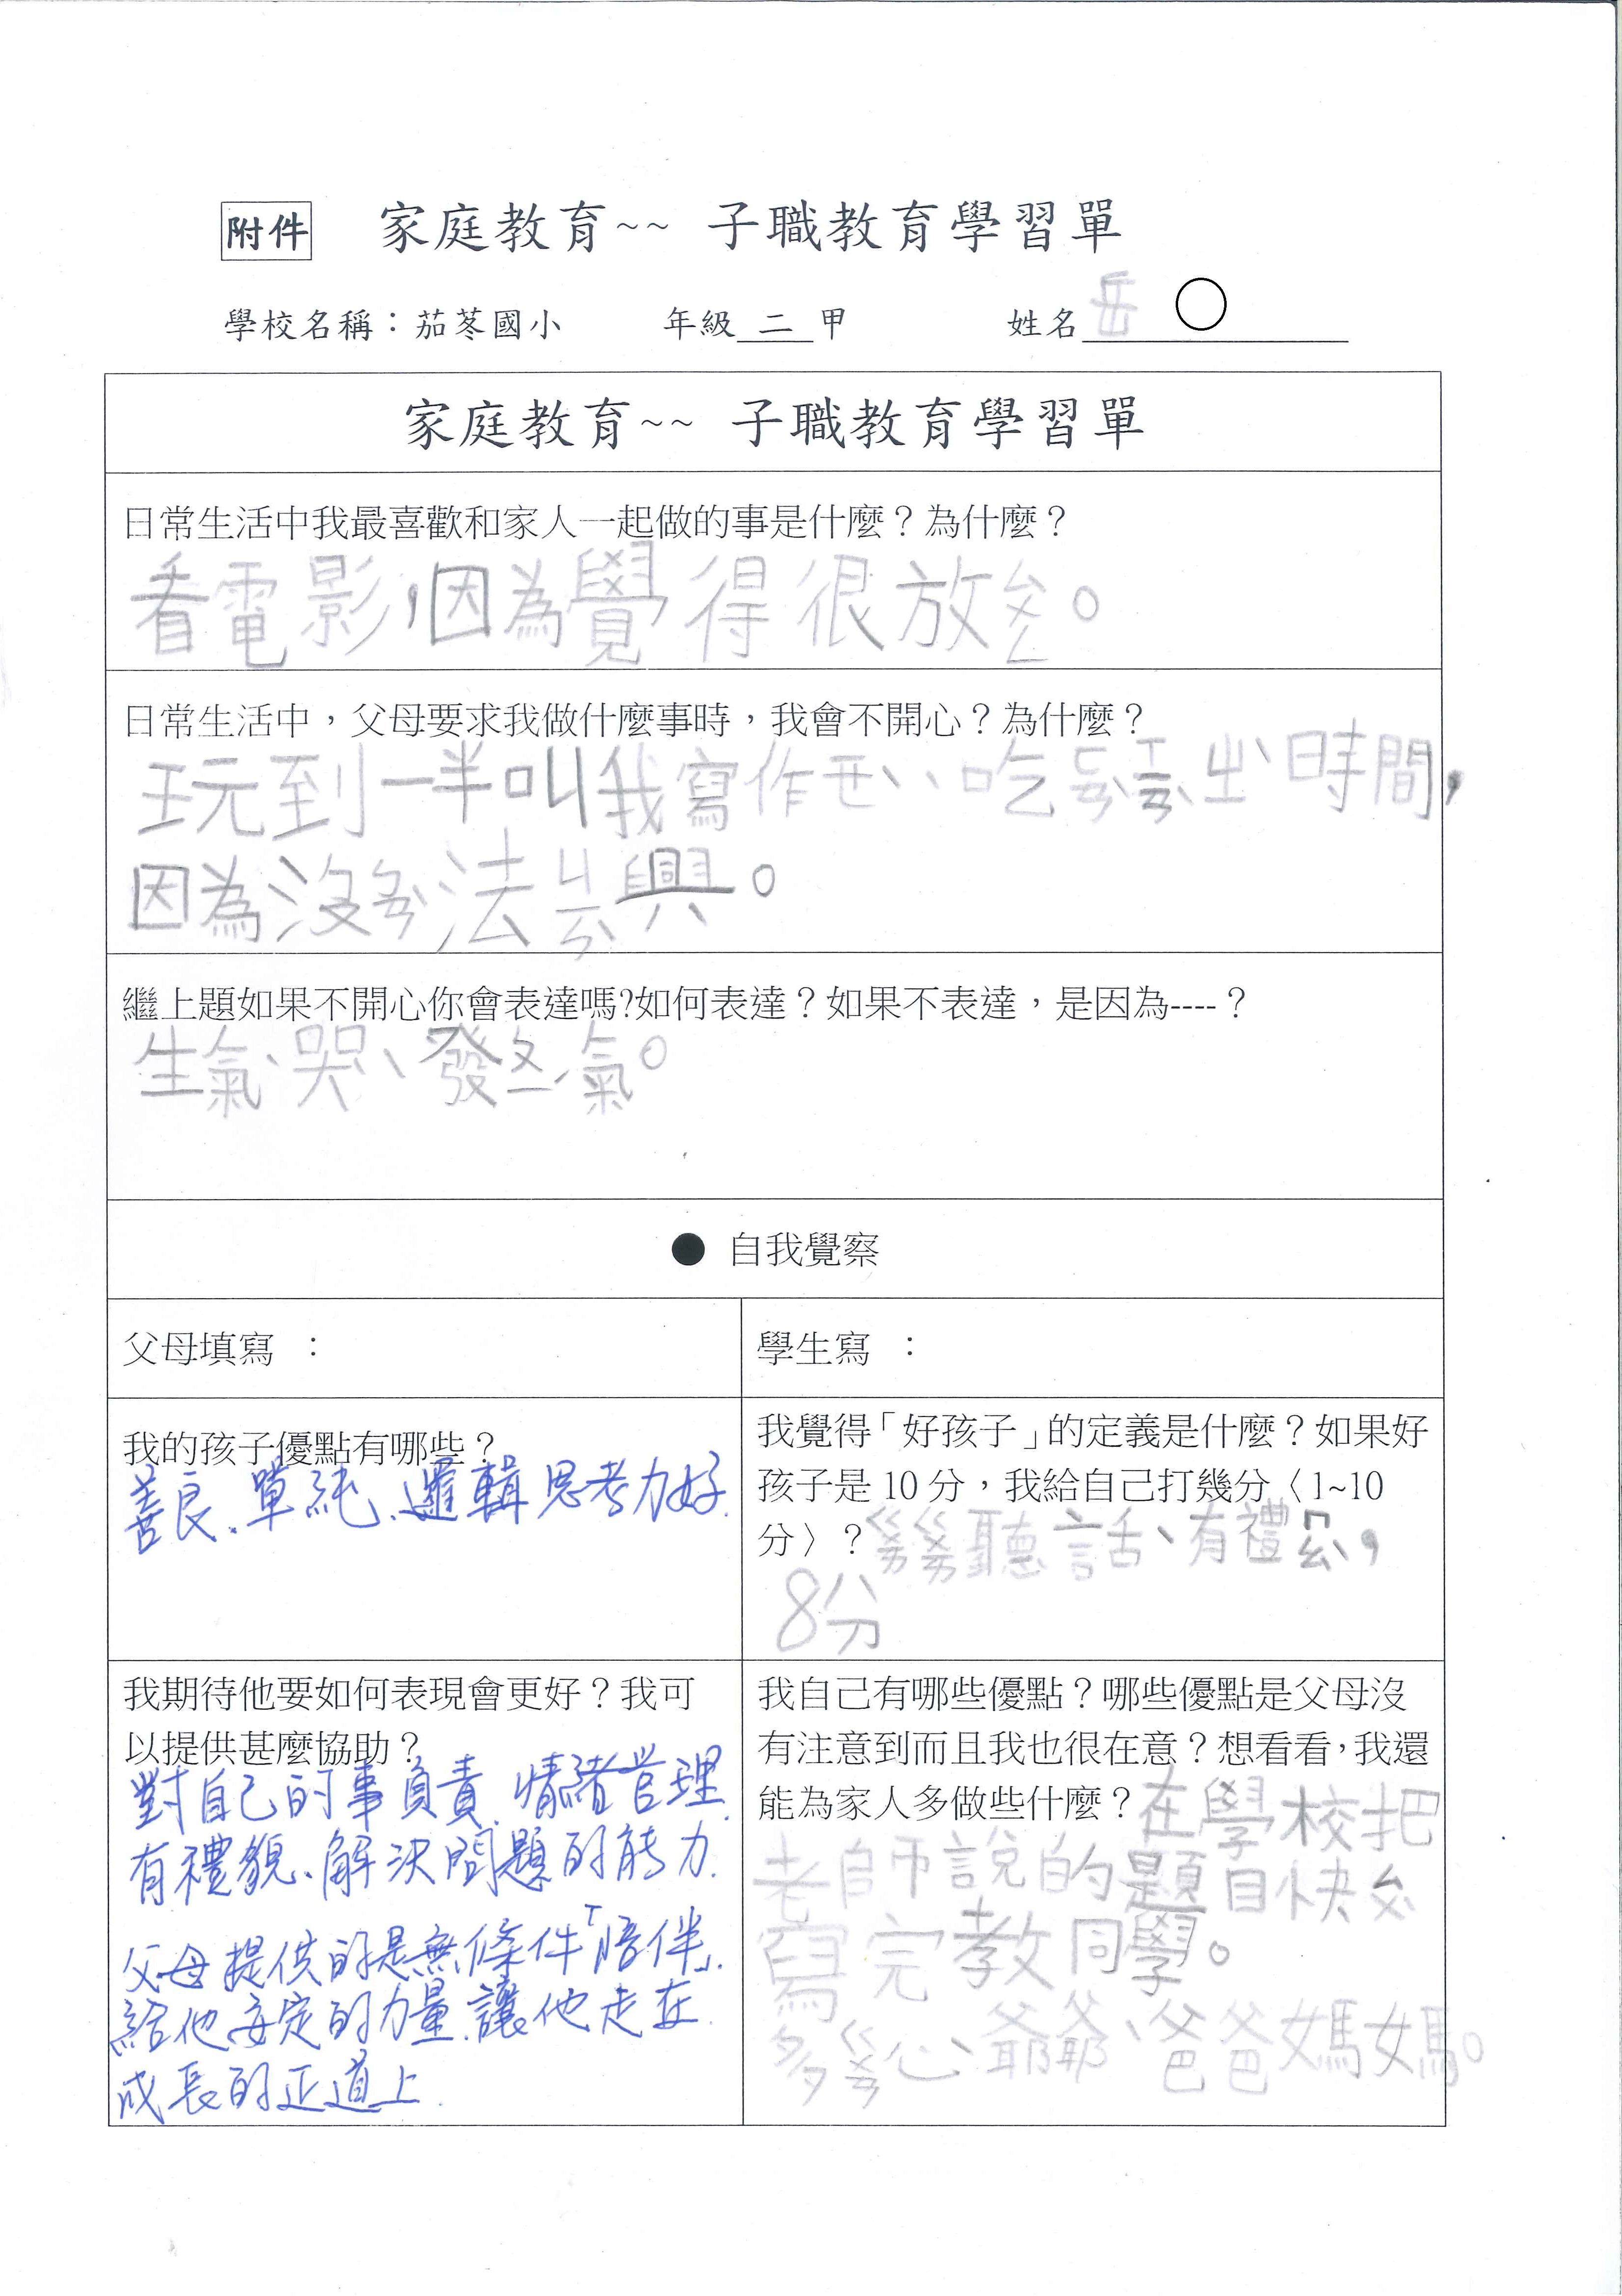 附件 家庭教育~~ 子職教育學習單
學校名稱：茄苳國小 年級 二 甲 姓名 岳 ○
家庭教育~~ 子職教育學習單
日常生活中我最喜歡和家人一起做的事是什麼？為什麼？
看電影,因為覺得很放ㄙㄨㄥ。
日常生活中，父母要求我做什麼事時，我會不開心？為什麼？
玩到一半叫我寫作ㄧㄝˋ、吃
時間，
因為沒ㄅㄢˋ法ㄐㄧㄣˋ興。
繼上題如果不開心你會表達嗎?如何表達？如果不表達，是因為----？
生氣、哭、發ㄆㄧˊ氣。
● 自我覺察
父母填寫 ：
學生寫 ：
我的孩子優點有哪些？
善良、單純、邏輯思考力好.
我覺得「好孩子」的定義是什麼？如果好
孩子是 10 分，我給自己打幾分〈1~10
分〉？ㄍㄞㄍㄞ聽話、有禮ㄇㄠˋ，
8分
我期待他要如何表現會更好？我可
以提供甚麼協助？
對自己的事負責、情緒管理、
有禮貌、解決問題的能力.
父母提供的是無條件「陪伴」.
給他安定的力量.讓他走在
成長的正道上.
我自己有哪些優點？哪些優點是父母沒
有注意到而且我也很在意？想看看，我還
能為家人多做些什麼？在學校把
老師說的題目快ㄙㄨˋ
寫完教同學。
多ㄍㄨㄢ心、爺爺、爸爸媽媽。